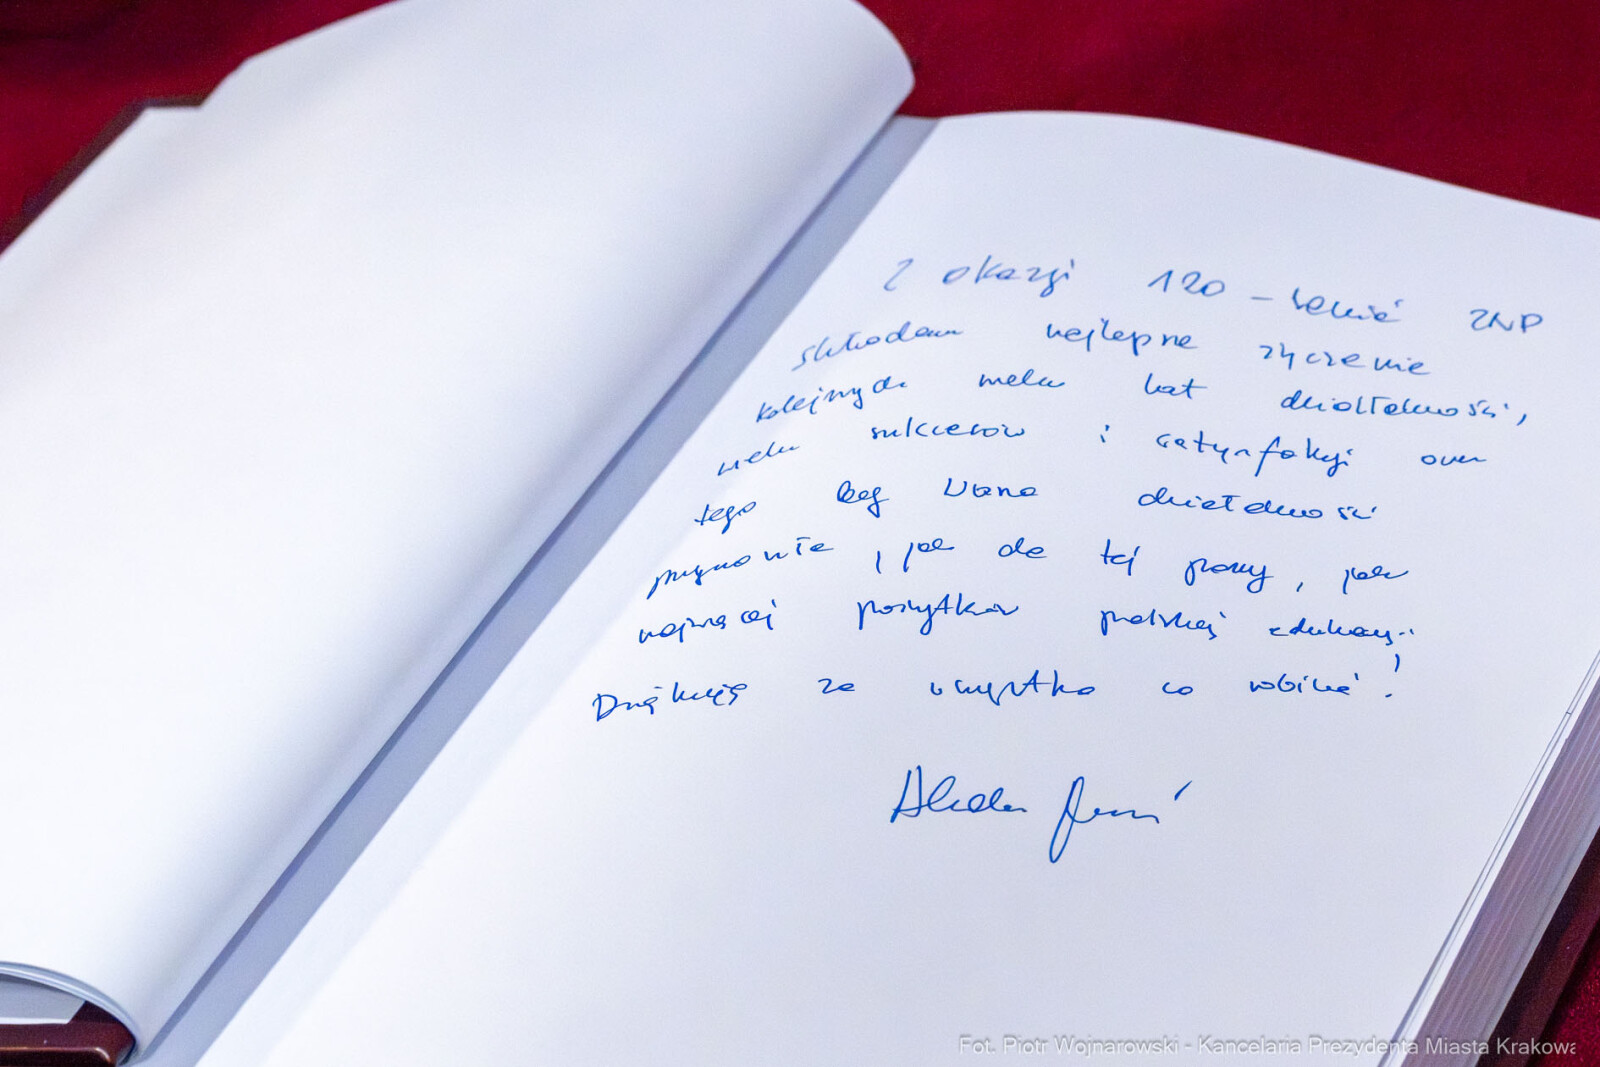 Z okazji 120-lecia ZNP
składam najlepsze życzenia
kolejnych wielu lat działalności,
wielu sukcesów i satysfakcji oraz
tego by Wasza działalność
przynosiła, jak do tej pory, jak
najwięcej pożytków polskiej edukacji.
Dziękuję za wszystko co robicie!
Fot. Piotr Wojnarowski - Kancelaria Prezydenta Miasta Krakowa